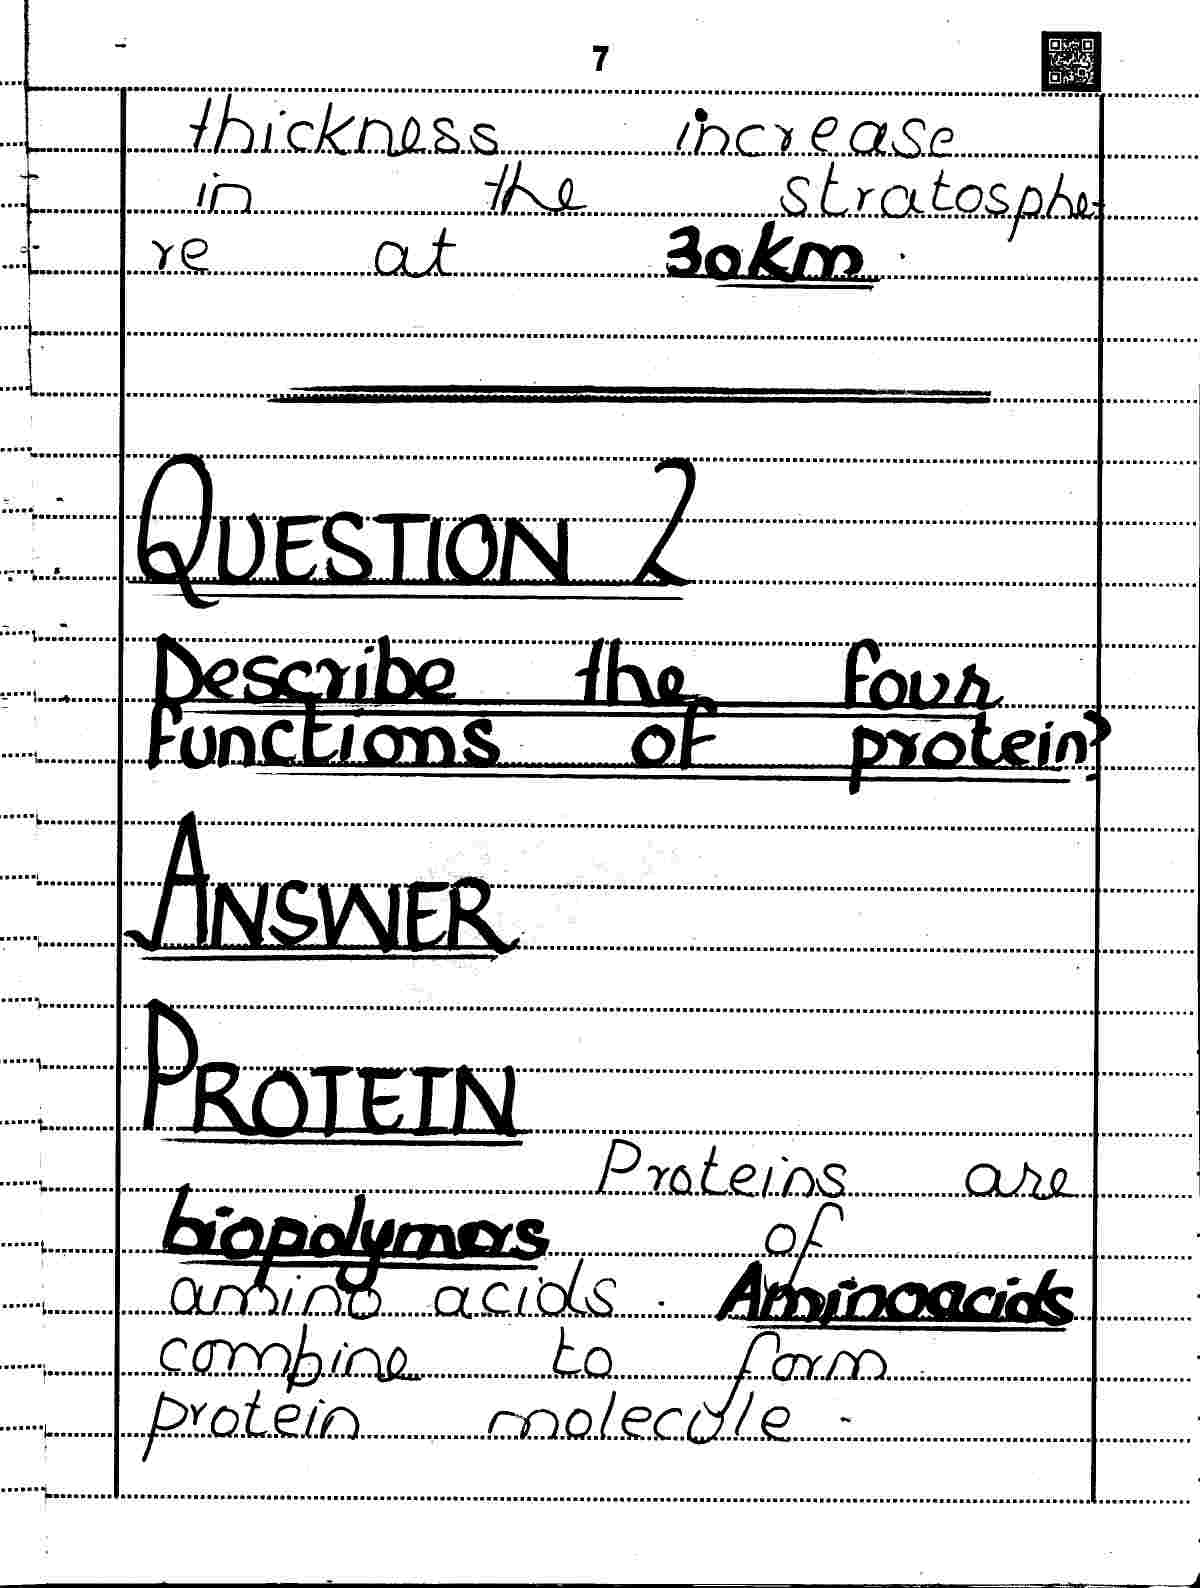 7
thickness increase
in the stratosphe-
re at 30km.
QUESTION 2
Describe the four
functions of protein?
ANSWER
PROTEIN
Proteins are
biopolymers of
amino acids. Aminoacids
combine to form
protein molecule.